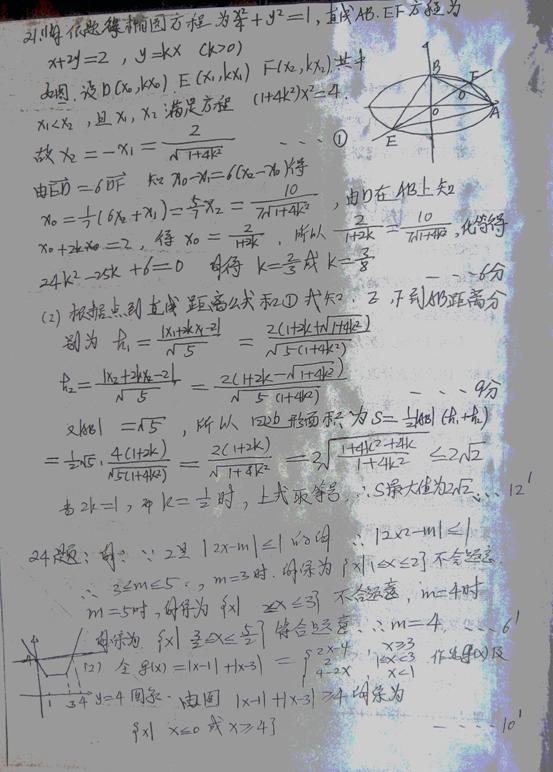 21.(1) 依题得椭圆方程为x²/4+y²=1,直线AB.EF方程为
x+2y=2 , y=kx (k>0)
如图.设D(x₀,kx₀) E(x₁,kx₁) F(x₂,kx₂)其中
x₁<x₂,且x₁,x₂满足方程 (1+4k²)x²=4.
故 x₂=-x₁=2/√(1+4k²) --- ①
由ED=6DF 知 x₀-x₁=6(x₂-x₀)得
x₀=1/7(6x₂+x₁)=5/7x₂=10/7√(1+4k²) ,由D在AB上知
x₀+2kx₀=2,得x₀=2/(1+2k) .所以 2/(1+2k)=10/7√(1+4k²),化简得
24k²-25k+6=0 解得 k=2/3或k=3/8 ---6分
(2) 根据点到直线距离公式和①式知.E,F到AB距离分
别为 h₁=|x₁+2kx₁-2|/√5=2(1+2k+√(1+4k²))/√(5(1+4k²))
h₂=|x₂+2kx₂-2|/√5=2(1+2k-√(1+4k²))/√(5(1+4k²)) ---9分
又|AB|=√5,所以四边形面积为S=½|AB|(h₁+h₂)
=½√5.4(1+2k)/√(5(1+4k²))=2(1+2k)/√(1+4k²)=2√((1+4k²+4k)/(1+4k²))≤2√2
当2k=1,即k=½时,上式取等号.∴S最大值为2√2.--12'
24题:解:∵2是|2x-m|≤1的解 ∴|2×2-m|≤1
∴3≤m≤5.,m=3时.解集为{x|1≤x≤2}不合题意
m=5时,解集为{x| 2≤x≤3}不合题意,m=4时
解集为{x|3/2≤x≤5/2}符合题意∴m=4.---6'
(2) 令g(x)=|x-1|+|x-3|={2x-4, x≥3
2 1≤x<3 作出g(x)及
4-2x x<1
y=4图象.由图|x-1|+|x-3|≥4解集为
{x| x≤0或x≥4} ---10'
B
F
D
O
A
E
4
1
3
4